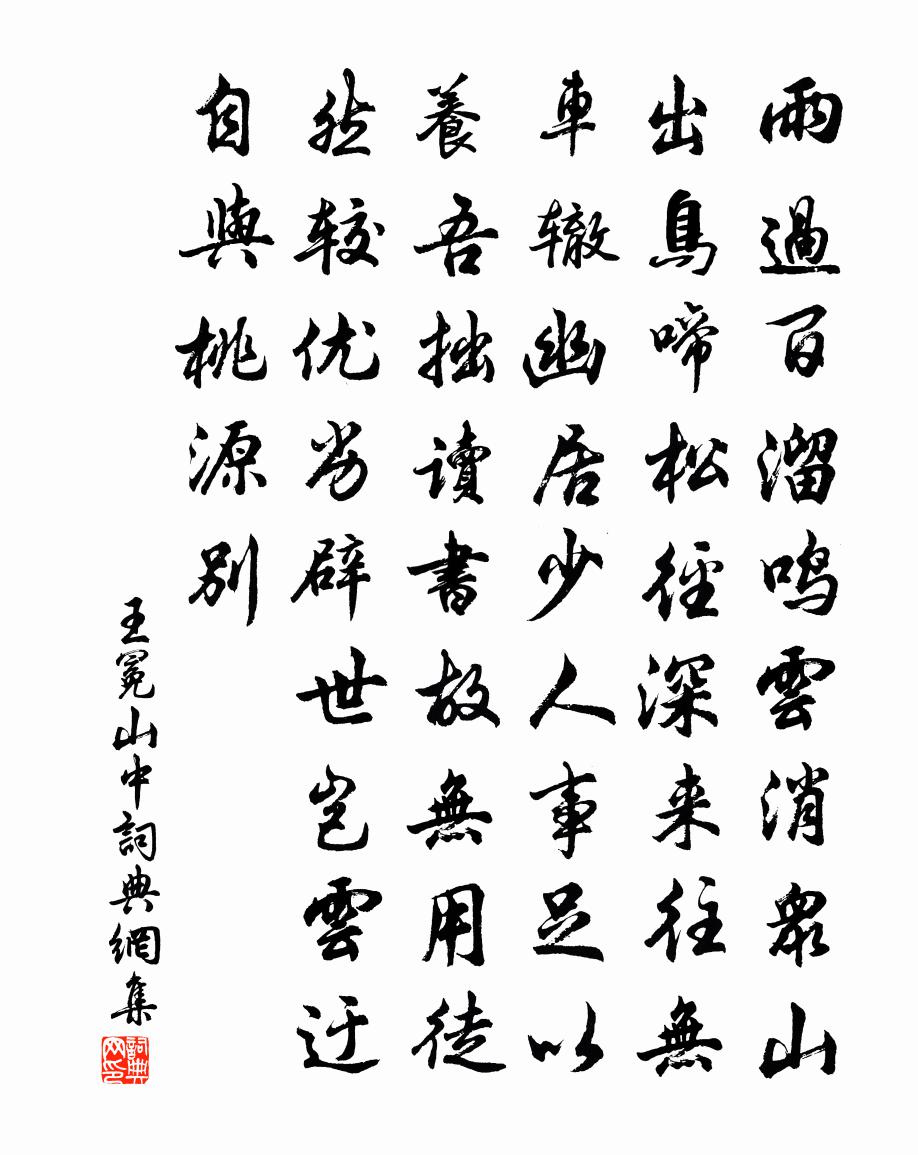 雨過百溜鳴雲消衆山
出鳥啼松徑深来往無
車辙幽居少人事足以
養吾拙讀書故無用徒
然较优劣辟世豈雲迂
自與桃源别
王冕山中詞典網集
詞典网印